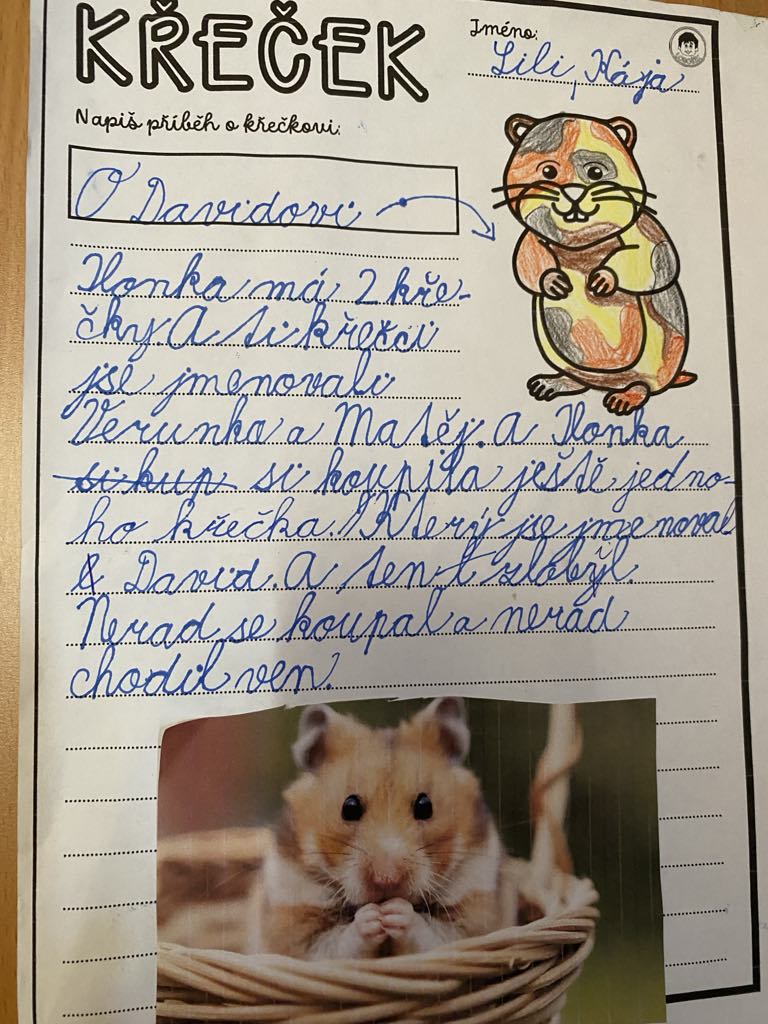 KŘEČEK
Jméno:
Lili, Kája
Napiš příběh o křečkovi:
O Davidovi
Ilonka má 2 kře-
čky. A ti křečci
jse jmenovali
Verunka a Matěj. A Ilonka
si kup si koupila ještě jedno-
ho křečka. Který jse jmenoval
David. A ten zlobyl.
Nerad se koupal a nerad
chodil ven.